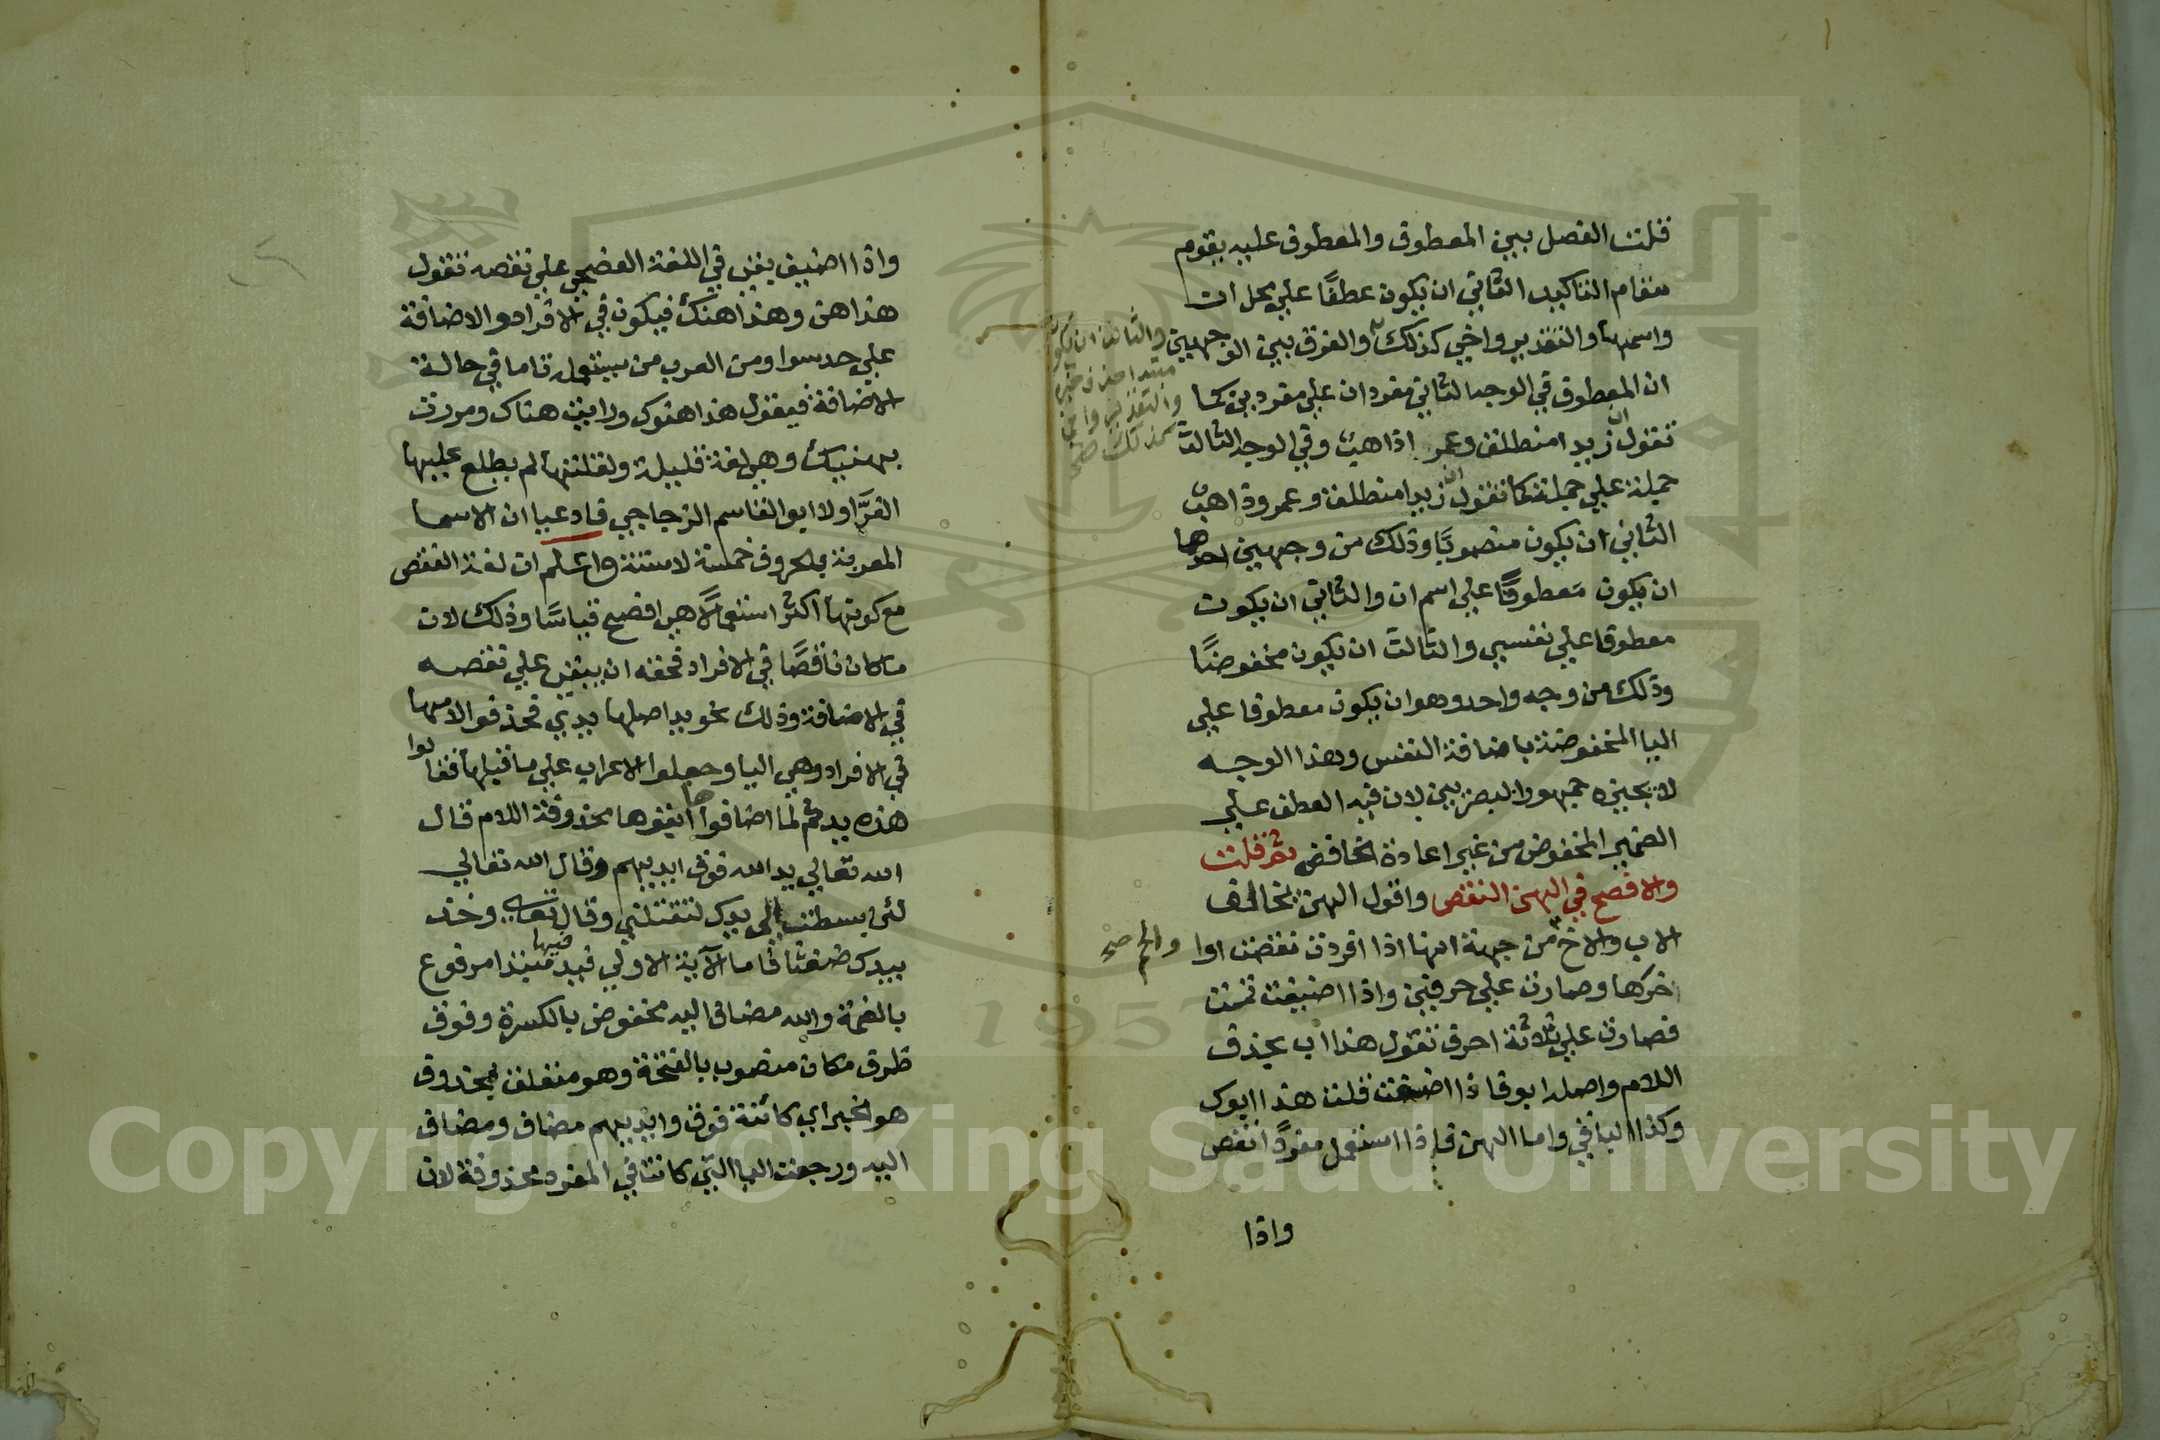 قلت الفصل بين المعطوف والمعطوف عليه يقوم
مقام التاكيد الثاني ان يكون عطفًا علي محل ان
واسمها والتقدير واخي كذلك والفرق بين الوجهين
والثالث ان يكون
مبتدا حذف خبره
والتقدير واخي
كذلك صح
ان المعطوف في الوجه الثاني مفردان علي مفردين كما
تقول ان زيدا منطلق وعمر اذاهب وفي الوجه الثالث
جملة علي جملة كما تقول ان زيدا منطلق وعمرو ذاهب
الثاني ان يكون منصوبًا وذلك من وجهين احدها
ان يكون معطوفًا علي اسم ان والثاني ان يكون
معطوفا علي نفسي والثالث ان يكون مخفوضًا
وذلك من وجه واحد وهو ان يكون معطوفا علي
اليا المخفوضة باضافة النفس وهذا الوجه
لا يجيزه جمهور البصريين لان فيه العطف علي
الضمير المخفوض من غير اعادة الخافض ثم قلت
والافصح في الهن النقص واقول الهن يخالف
الاب والاخ من جهة انها اذا افردت نقصت اوا
والحم صح
خركها وصارت علي حرفين واذا اضيفت تمت
فصارت علي ثلاثة احرف تقول هذا اب بحذف
اللام واصله ابو فاذا اضفت قلت هذا ابوك
وكذا الباقي واما الهن فاذا استعمل مفردًا نقص
واذا
واذا اضيف بقي في اللغة الفصحي علي نقصه تقول
هذا هن وهذا هنك فيكون في الافراد والاضافة
علي حد سوا ومن العرب من يستعمله تاما في حالة
الاضافة فيقول هذا هنوك ورايت هناك ومررت
بهنيك وهي لغة قليلة ولقلتها لم يطلع عليها
الفرَّا ولا ابو القاسم الزجاجي فادعيا ان الاسما
المعربة بالحروف خمسة لا ستة واعلم ان لغة النقص
مع كونها اكثر استعمالًا هي افصح قياسًا وذلك لان
ما كان ناقصًا في الافراد فحقه ان يبقي علي نقصه
في الاضافة وذلك نحو يد اصلها يدي فحذفوا لامها
في الافراد وهي اليا وجعلوا الاعراب علي ما قبلها فقالوا
هذه يد ثم لما اضافوها ابقوها محذوفة اللام قال
الله تعالي يد الله فوق ايديهم وقال الله تعالي
لئن بسطت الي يدك لتقتلني وقال تعالي وخذ
بيدك ضغثا فاما الآية الاولي فيد فيها مبتدا مرفوع
بالضمة والله مضاف اليه مخفوض بالكسرة وفوق
ظرف مكان منصوب بالفتحة وهو متعلق بمحذوف
هو الخبر اي كائنة فوق وايديهم مضاف ومضاف
اليه ورجعت اليا التي كانت في المفرد محذوفة لان
1957
Copyright © King Saud University